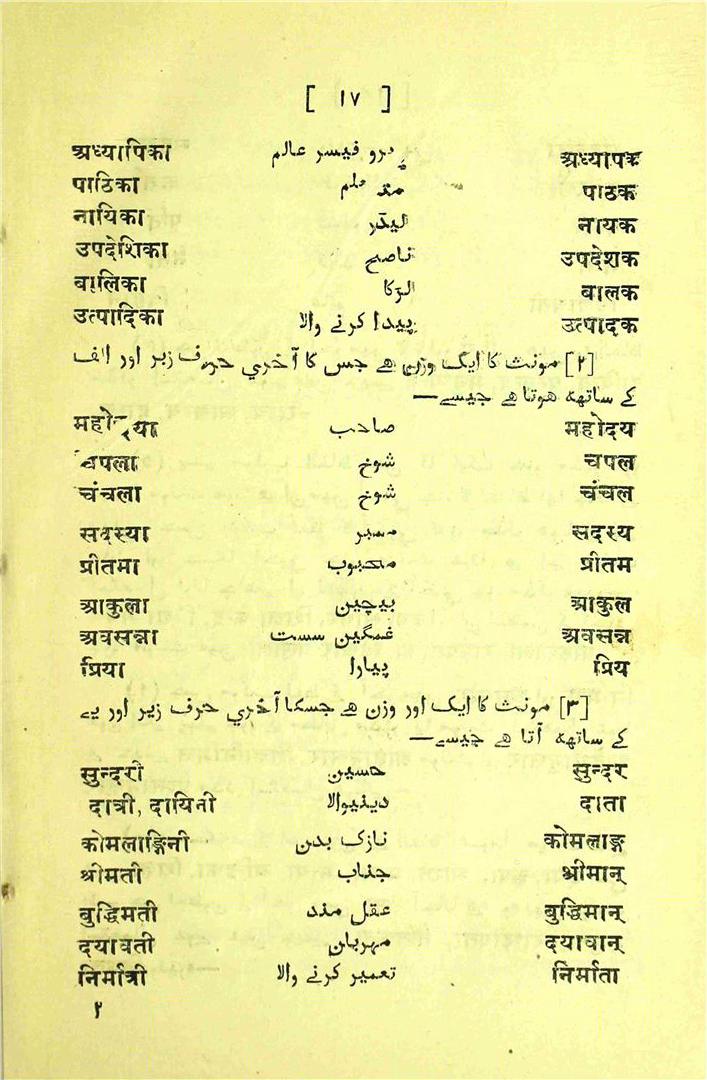 [ ۱۷ ]
अध्यापक پروفیسر عالم अध्यापिका
पाठक متعلم पाठिका
नायक لیڈر नायिका
उपदेशक ناصح उपदेशिका
बालक لڑکا बालिका
उत्पादक پیدا کرنے والا उत्पादिका
[۲] مونث کا ایک وزن ھے جس کا آخري حرف زبر اور الف
کے ساتھہ ھوتا ھے جیسے—
महोदय صاحب महोदया
चपल شوخ चपला
चंचल شوخ चंचला
सदस्य ممبر सदस्या
प्रीतम محبوب प्रीतमा
आकुल بیچین आकुला
अवसन्न غمگین سست अवसन्ना
प्रिय پیارا प्रिया
[۳] مونث کا ایک اور وزن ھے جسکا آخري حرف زیر اور یے
کے ساتھہ آتا ھے جیسے—
सुन्दर حسین सुन्दरी
दाता دینیوالا दात्री, दायिनी
कोमलाङ्ग نازک بدن कोमलाङ्गिनी
श्रीमान् جناب श्रीमती
बुद्धिमान् عقل مند बुद्धिमती
दयावान् مہربان दयावती
निर्माता تعمیر کرنے والا निर्मात्री
۲